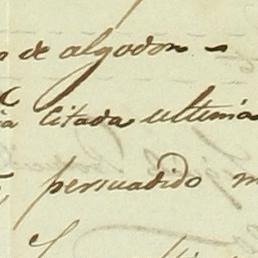 de algodon
citada ultima
persuadido